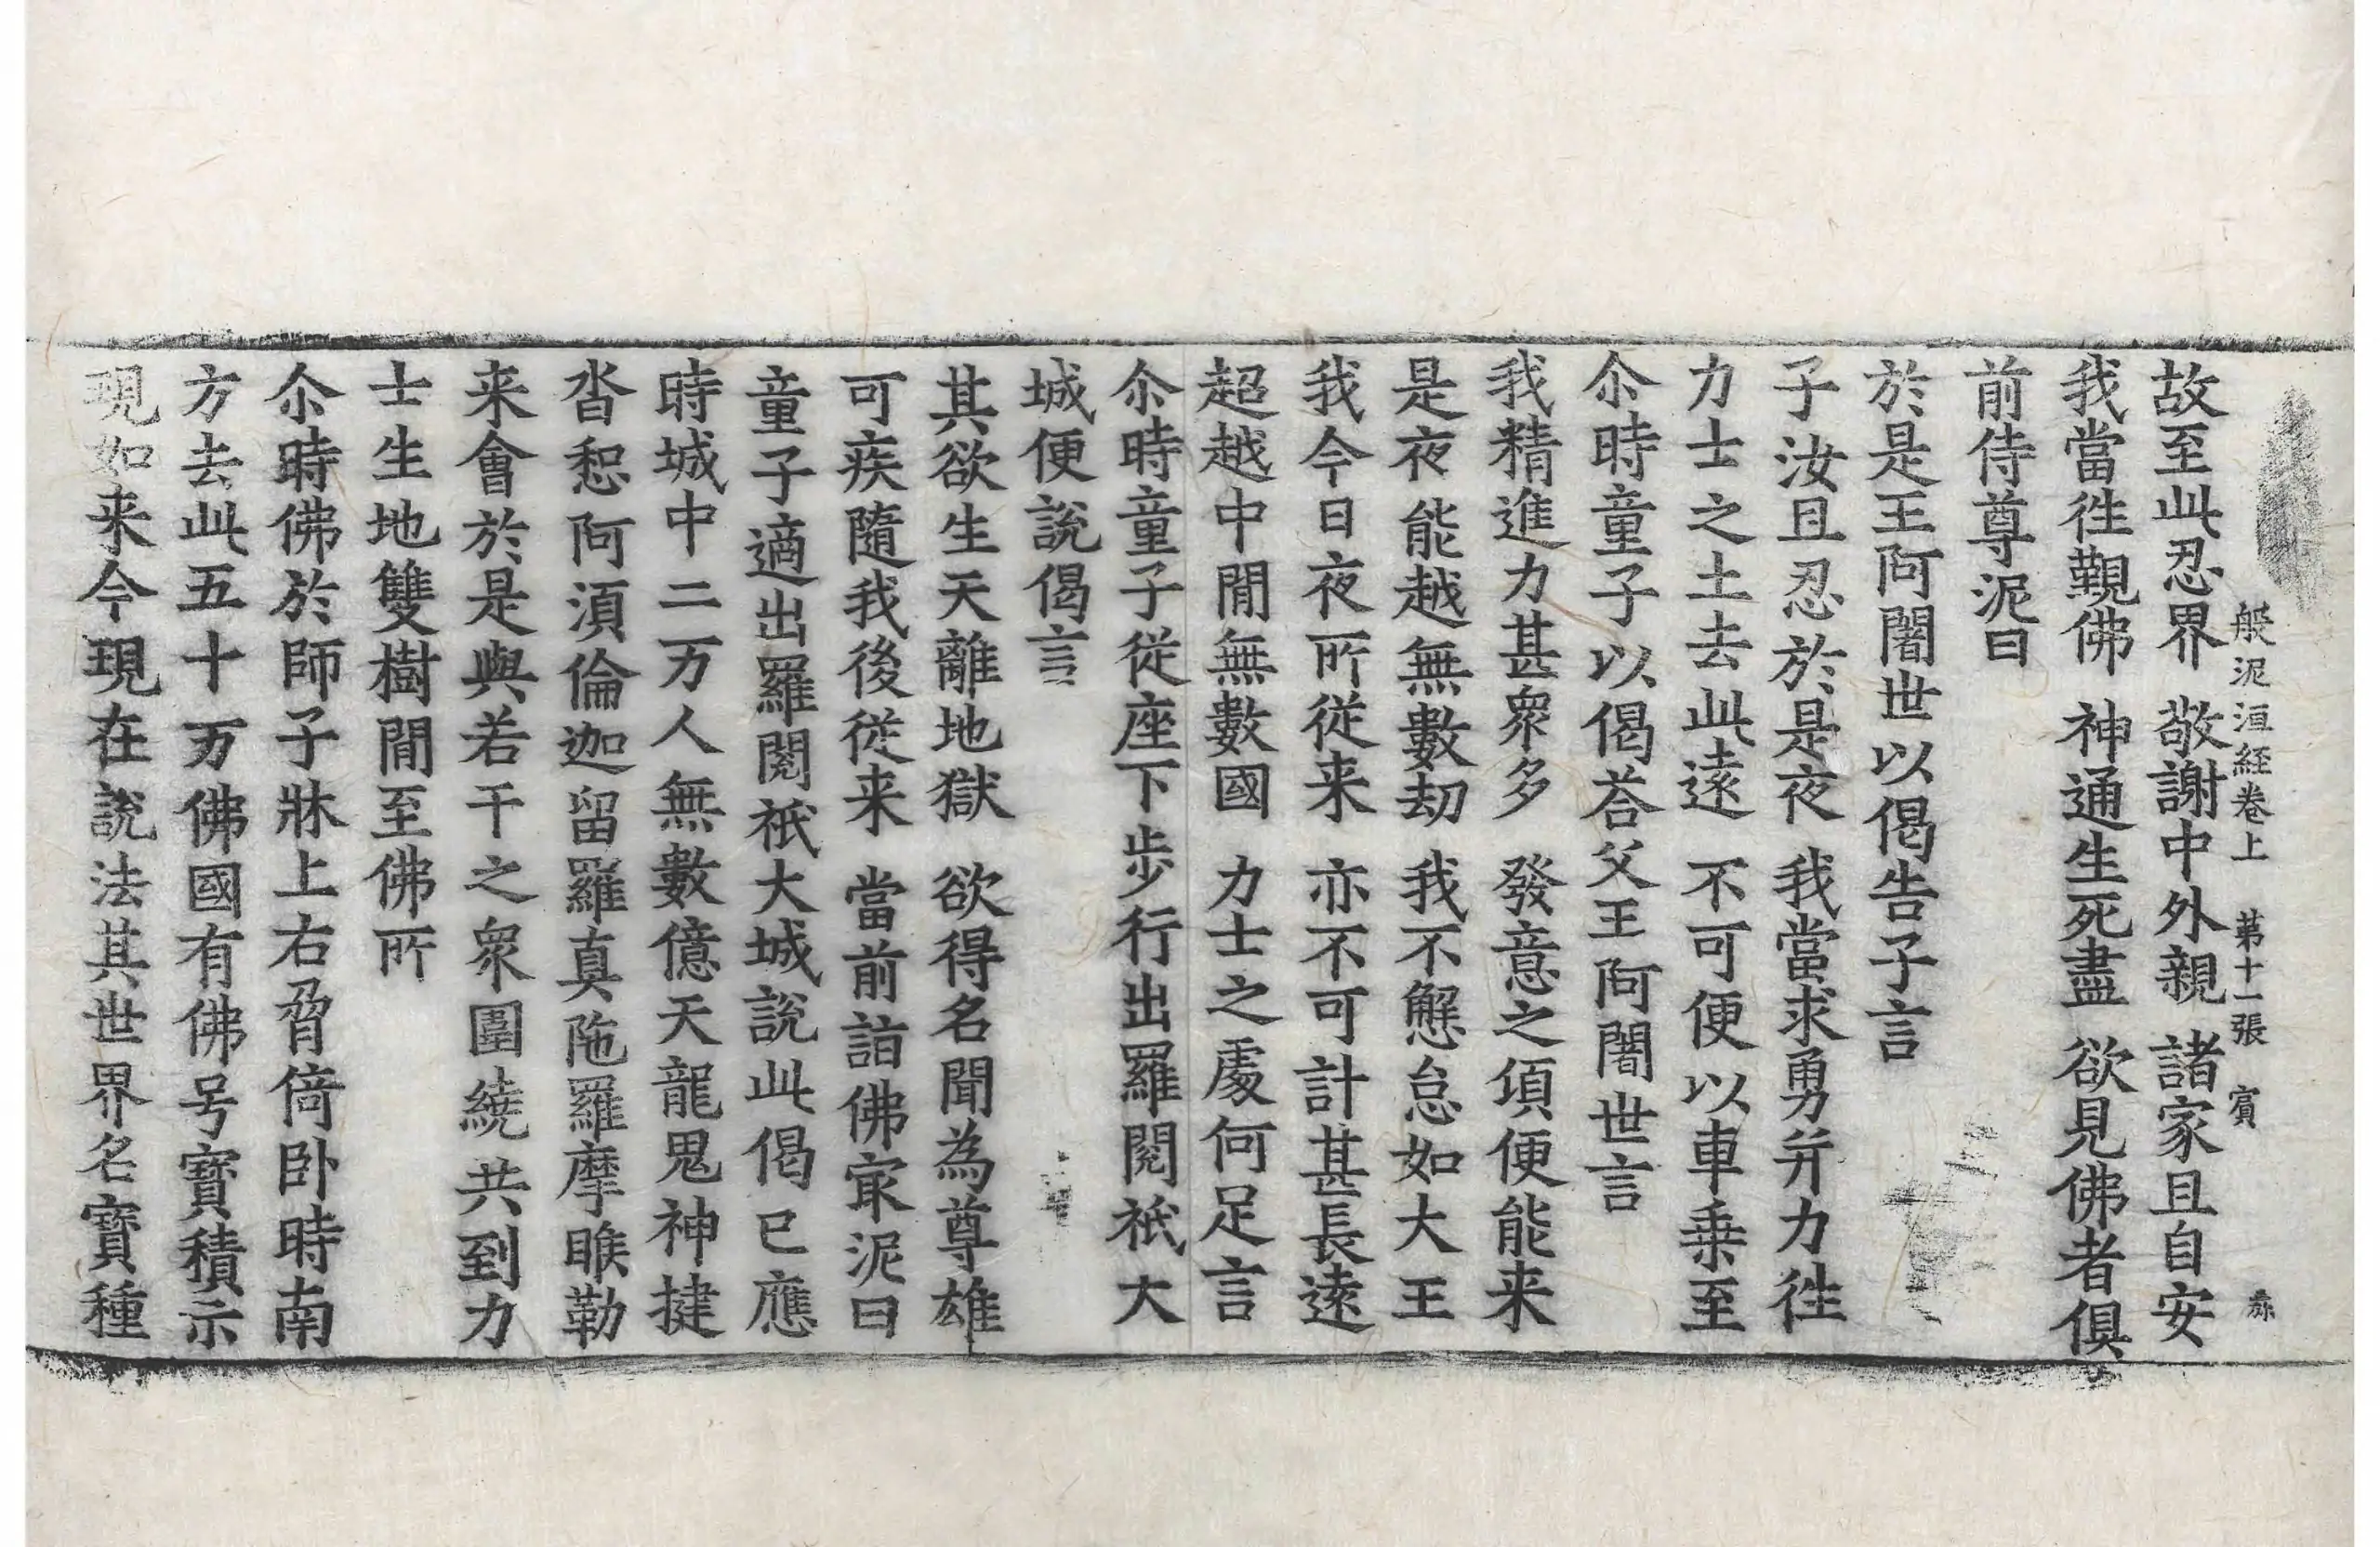 般泥洹経卷上　苐十一張　賔
故至此忍界　敬謝中外親　諸家且自安
我當徃覲佛　神通生死盡　欲見佛者俱
前侍尊泥曰
於是王阿闍世以偈告子言
子汝且忍於是夜　我當求勇并力徃
力士之土去此逺　不可便以車乗至
尒時童子以偈荅父王阿闍世言
我精進力甚衆多　發意之頃便能来
是夜能越無數劫　我不懈怠如大王
我今日夜所從来　亦不可計甚長逺
超越中閒無數國　力士之處何足言
尒時童子從座下步行出羅閱祇大
城便說偈言
其欲生天離地獄　欲得名聞為尊雄
可疾隨我後從来　當前詣佛㝡泥曰
童子適出羅閱祇大城說此偈已應
時城中二万人無數億天龍鬼神揵
沓惒阿須倫迦留羅真陁羅摩睺勒
来會於是與若干之衆圍繞共到力
士生地雙樹閒至佛所
尒時佛於師子牀上右脅倚卧時南
方去此五十万佛國有佛号寶積示
現如来今現在說法其世界名寶種